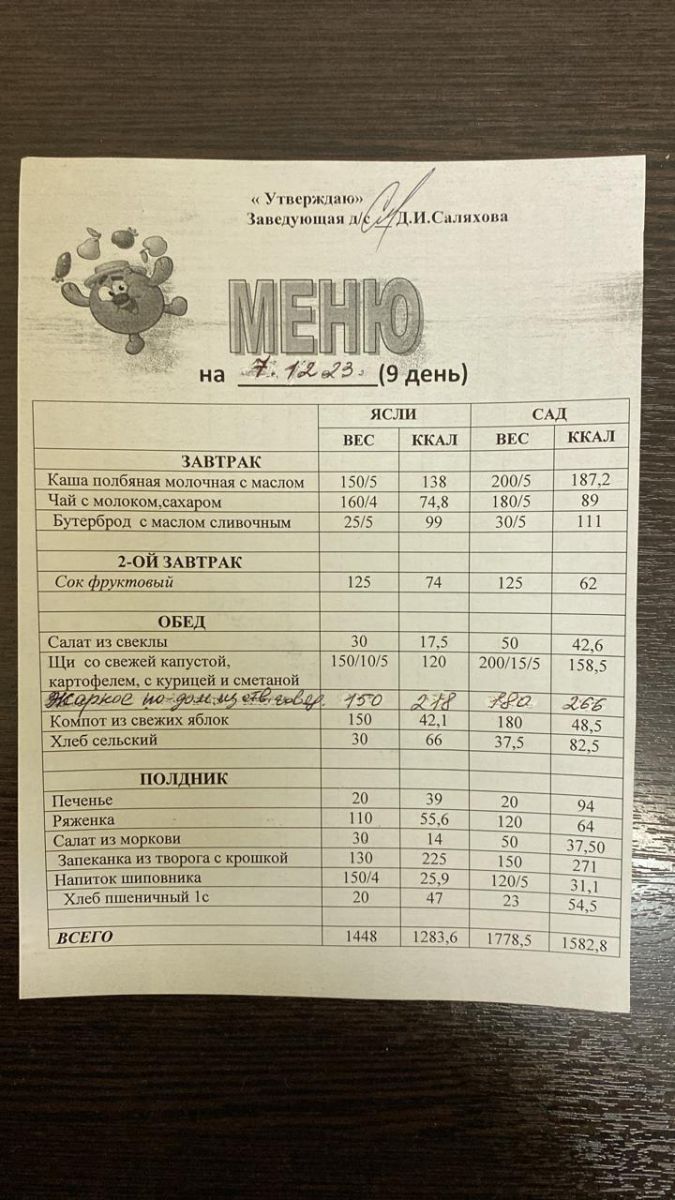 « Утверждаю»
Заведующая д/с Д.И.Саляхова
МЕНЮ
на 7.12.23. (9 день)
ЯСЛИ САД
ВЕС ККАЛ ВЕС ККАЛ
ЗАВТРАК
Каша полбяная молочная с маслом 150/5 138 200/5 187,2
Чай с молоком,сахаром 160/4 74,8 180/5 89
Бутерброд с маслом сливочным 25/5 99 30/5 111
2-ОЙ ЗАВТРАК
Сок фруктовый 125 74 125 62
ОБЕД
Салат из свеклы 30 17,5 50 42,6
Щи со свежей капустой, 150/10/5 120 200/15/5 158,5
картофелем, с курицей и сметаной
Жаркое по-дом из отв говяд. 150 218 180 266
Компот из свежих яблок 150 42,1 180 48,5
Хлеб сельский 30 66 37,5 82,5
ПОЛДНИК
Печенье 20 39 20 94
Ряженка 110 55,6 120 64
Салат из моркови 30 14 50 37,50
Запеканка из творога с крошкой 130 225 150 271
Напиток шиповника 150/4 25,9 120/5 31,1
Хлеб пшеничный 1с 20 47 23 54,5
ВСЕГО 1448 1283,6 1778,5 1582,8